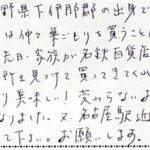 野県下伊那郡の出身で
は仲々巣ごもりを買うこと
先日、家族が名鉄百貨店
所を見つけて買ってきてく
り美味しい！変わらないお
なりまけた。又、名古屋駅近
て下さい。お願いします。